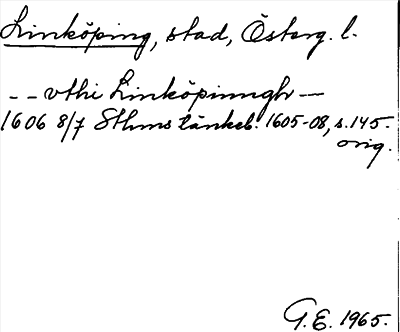 Linköping, stad, Österg. l.
-- vthi Linköpinngh --
1606 8/7 Sthms tänkeb. 1605-08, s. 145.
orig.
G.E. 1965.